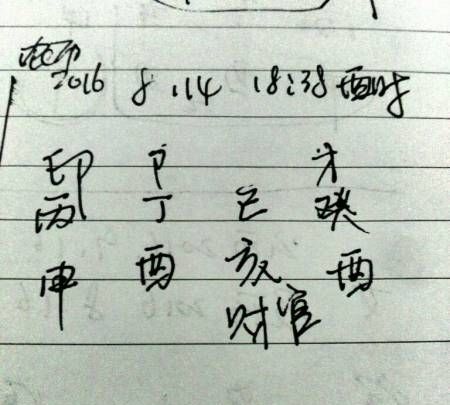 2016 8.14 18:38 酉时
印 卩 才
丙 丁 己 癸
申 酉 亥 酉
财官